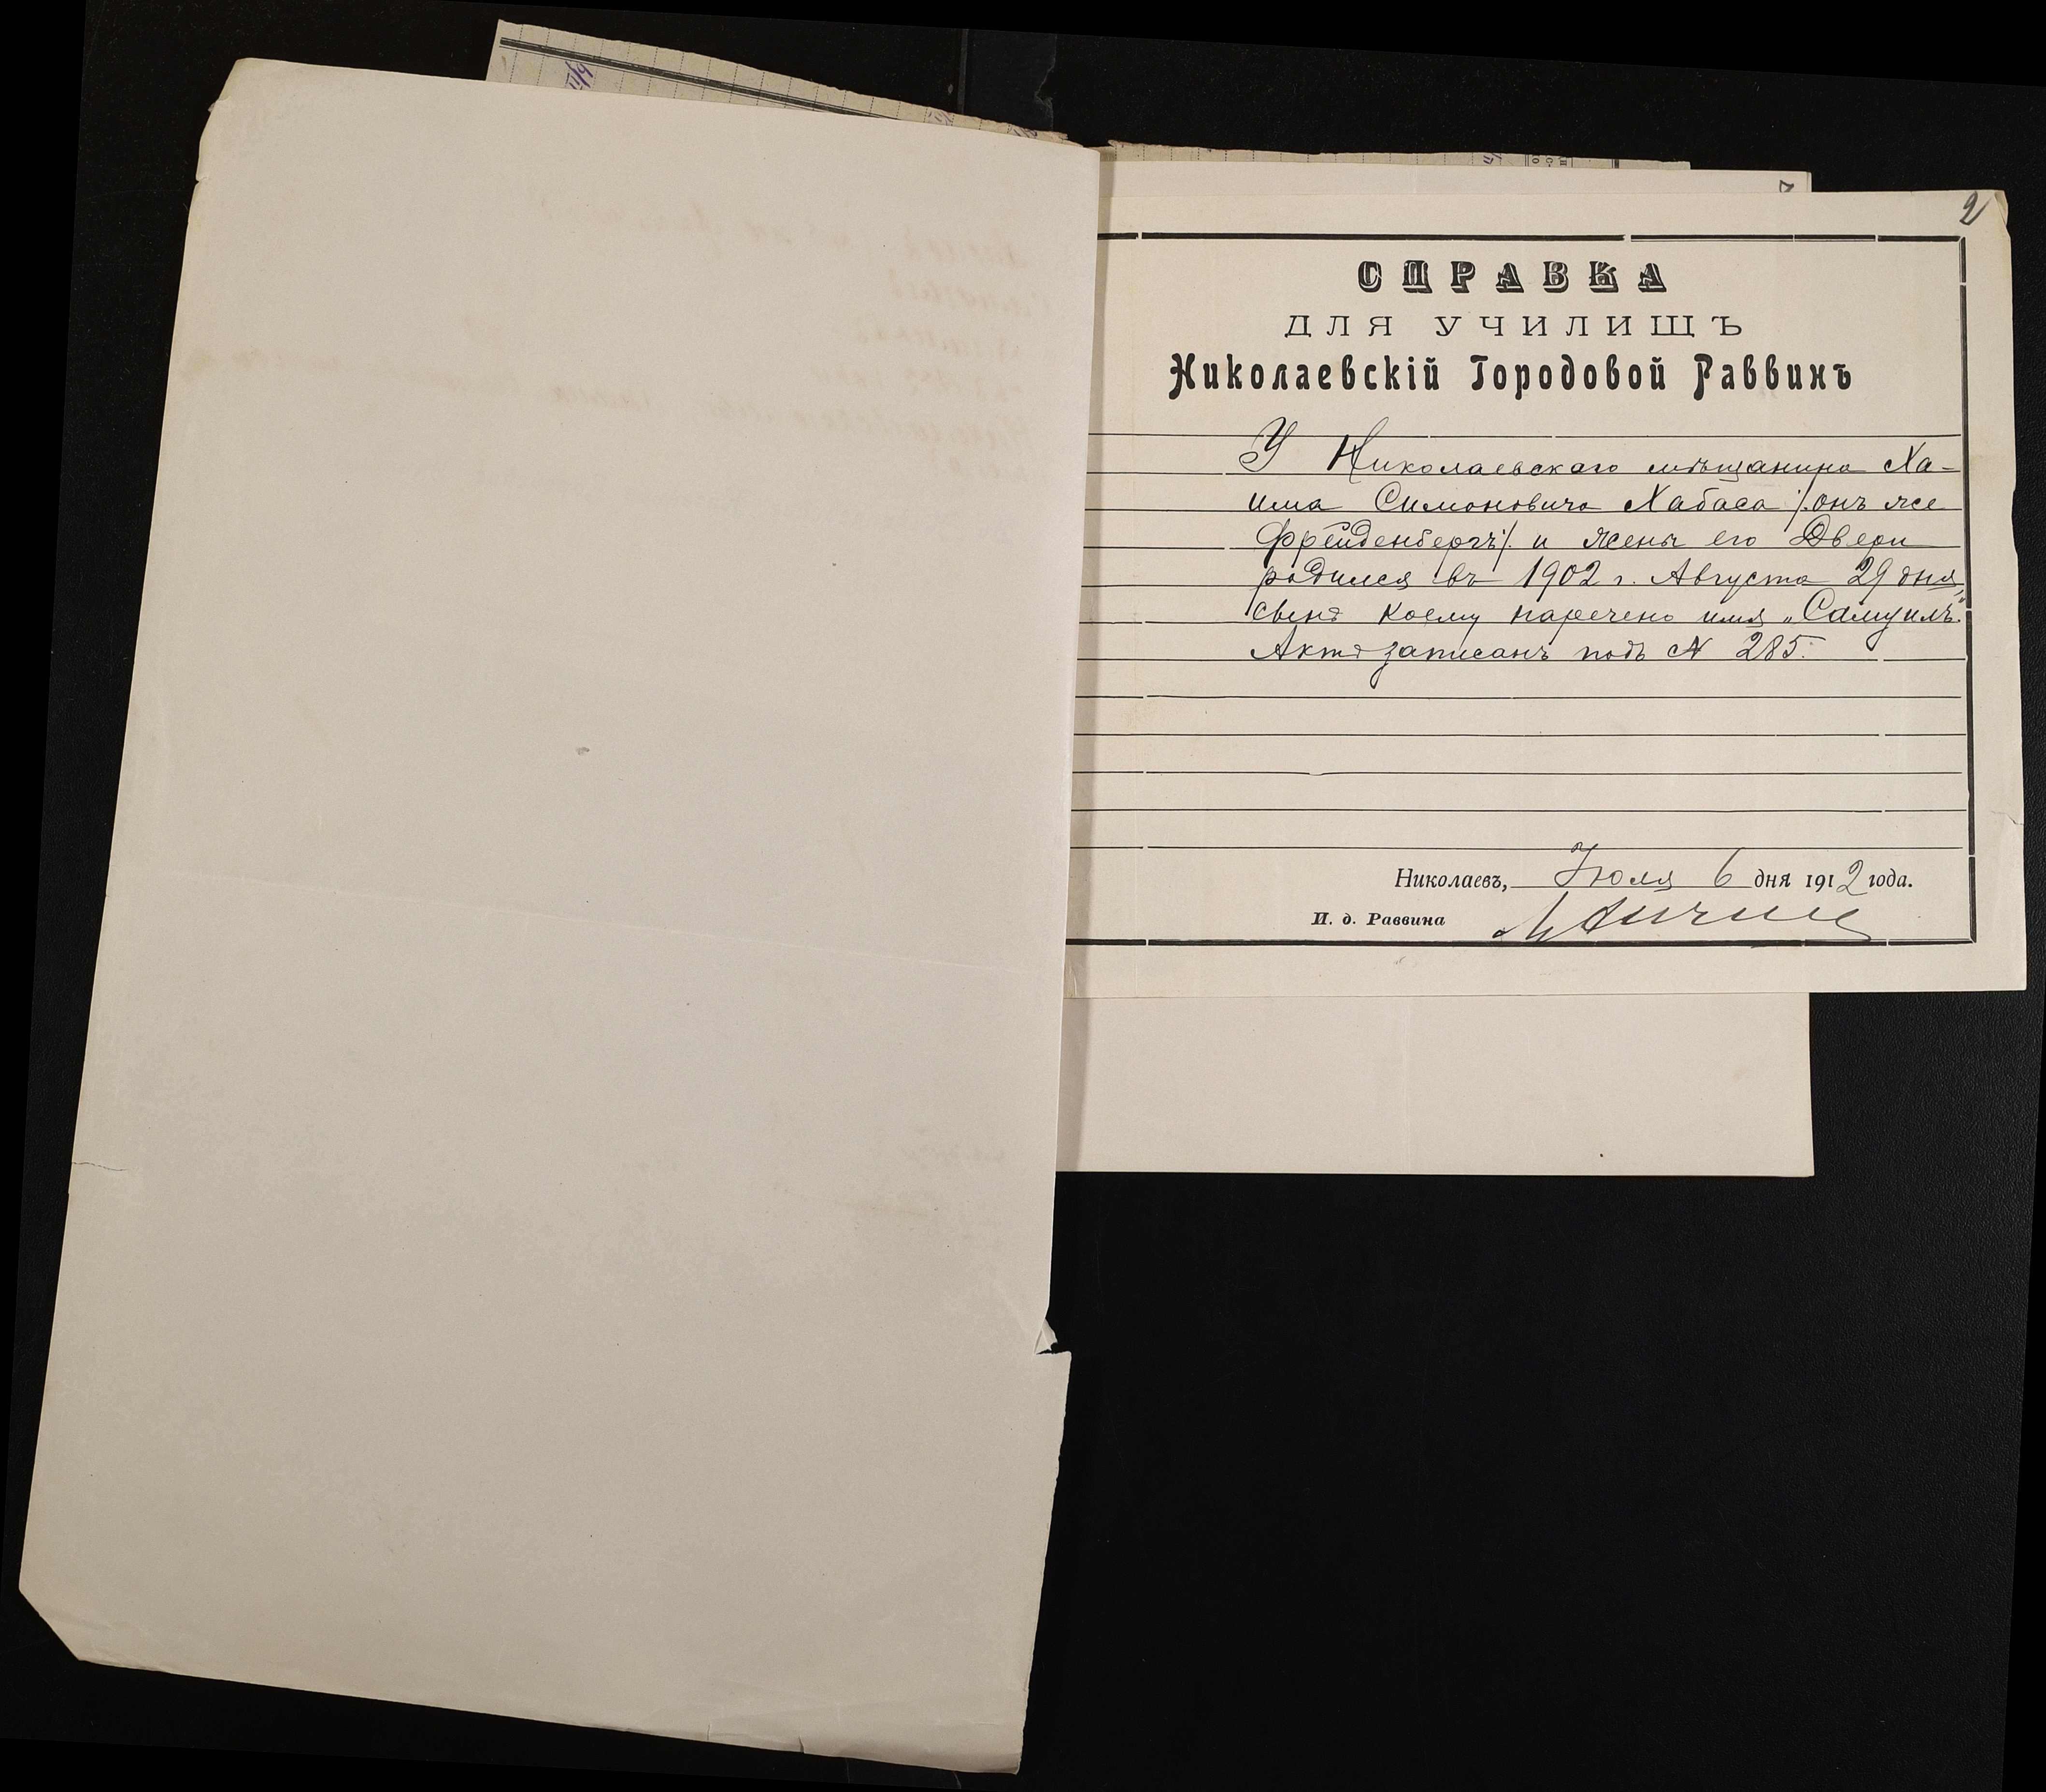 2
СПРАВКА
ДЛЯ УЧИЛИЩЪ
Николаевскій Городовой Раввинъ
У Николаевскаго мѣщанина Ха-
има Симоновича Хабаса /:онъ же
Фрейденбергъ:/ и жены его Двери
родился въ 1902 г. Августа 29 дня
сынъ коему наречено имя „Самуилъ“.
Актъ записанъ подъ № 285.
Николаевъ, Іюля 6 дня 1912 года.
И. д. Раввина